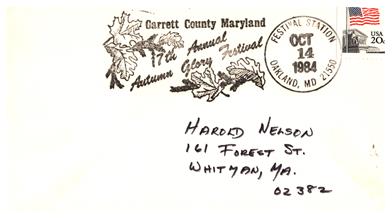 Garrett County Maryland
17th Annual
Autumn Glory Festival
FESTIVAL STATION
OCT
14
1984
OAKLAND, MD 21550
USA
20c
HAROLD NELSON
161 FOREST ST.
WHITMAN, MA.
02382